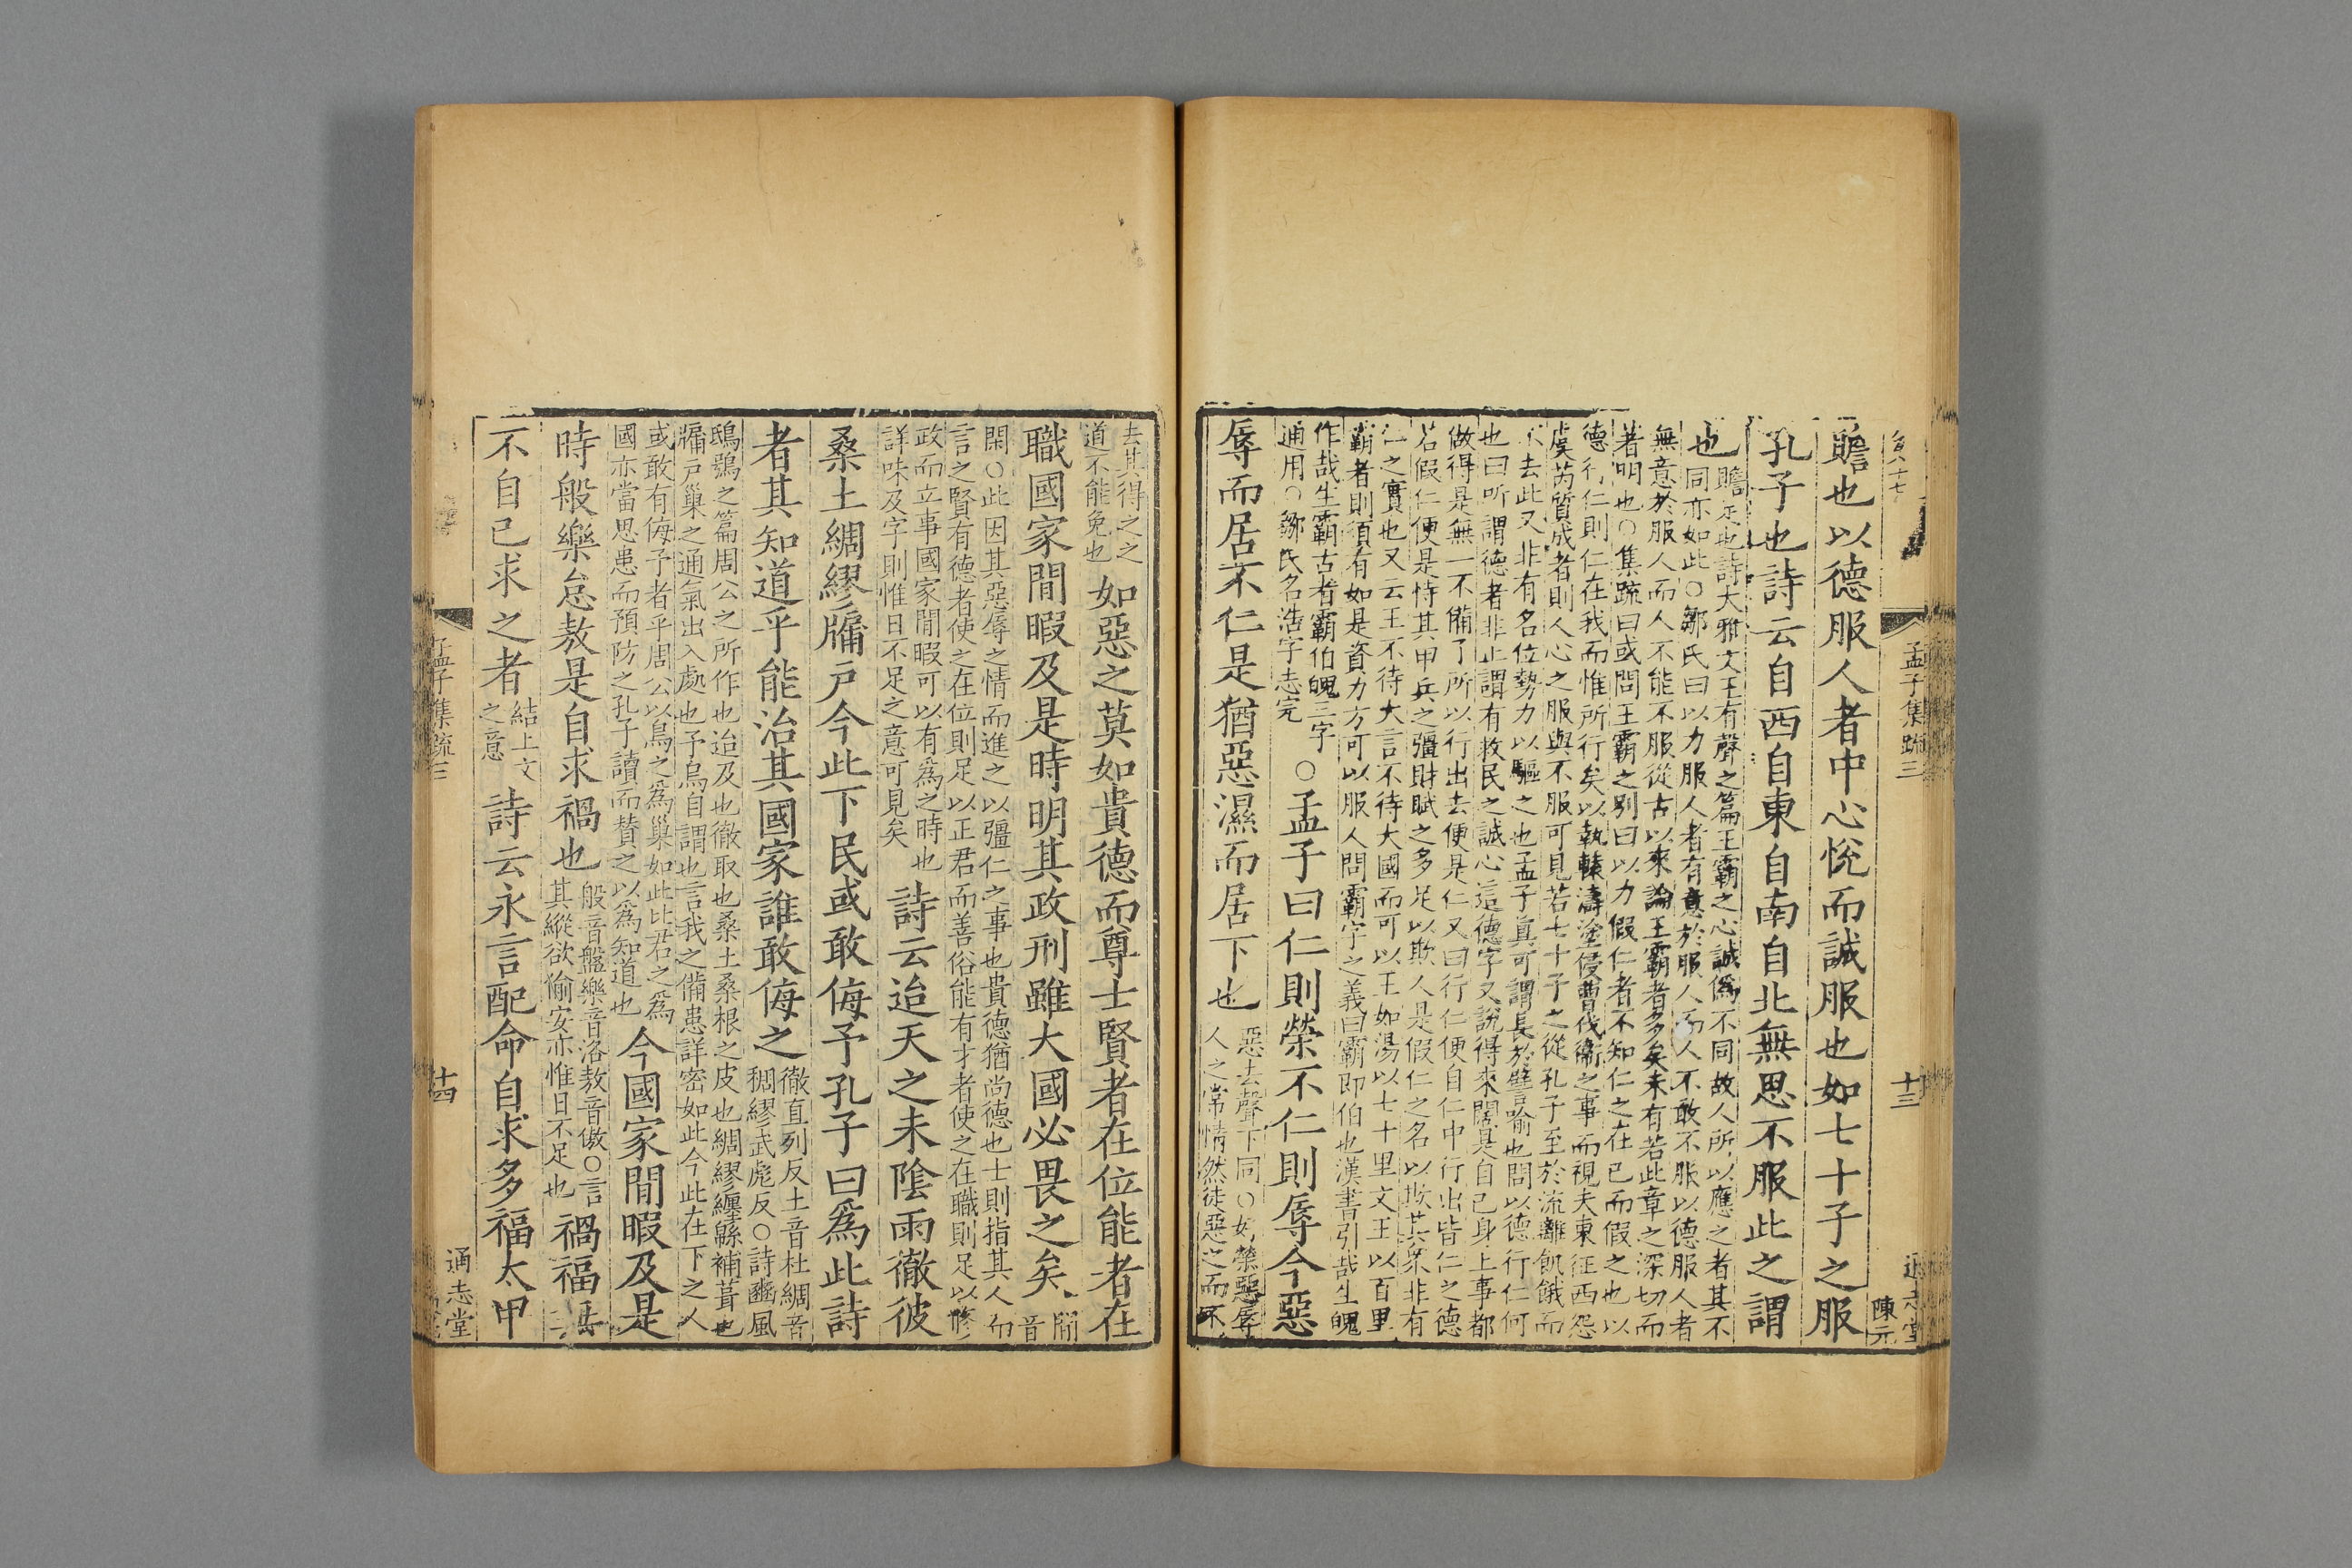 孟子集疏三
十三
陳元
贍也以德服人者中心悅而誠服也如七十子之服
孔子也詩云自西自東自南自北無思不服此之謂
也
贍足也詩大雅文王有聲之篇王霸之心誠僞不同故人所以應之者其不
同亦如此○鄒氏曰以力服人者有意於服人而人不敢不服以德服人者
無意於服人而人不能不服從古以來論王霸者多矣未有若此章之深切而
著明也○集疏曰或問王霸之別曰以力假仁者不知仁之在已而假之也以
德行仁則仁在我而惟所行矣以執轅濤塗侵曹伐衞之事而視夫東征西怨
虞芮質成者則人心之服與不服可見若七十子之從孔子至於流離飢餓而
不去此又非有名位勢力以驅之也孟子眞可謂長於譬喻也問以德行仁何
也曰所謂德者非止謂有救民之誠心這德字又說得來闊是自已身上事都
做得是無一不備了所以行出去便是仁又曰行仁便自仁中行出皆仁之德
若假仁便是恃其甲兵之彊財賦之多足以欺人是假仁之名以欺其衆非有
仁之實也又云王不待大言不待大國而可以王如湯以七十里文王以百里
霸者則須有如是資力方可以服人問霸字之義曰霸即伯也漢書引哉生魄
作哉生霸古者霸伯魄三字
通用○鄒氏名浩字志完
○孟子曰仁則榮不仁則辱今惡
辱而居不仁是猶惡濕而居下也
惡去聲下同○好榮惡辱
人之常情然徒惡之而不
去其得之之
道不能免也
如惡之莫如貴德而尊士賢者在位能者在
職國家閒暇及是時明其政刑雖大國必畏之矣
閒
音
閑○此因其惡辱之情而進之以彊仁之事也貴德猶尚德也士則指其人而
言之賢有德者使之在位則足以正君而善俗能有才者使之在職則足以修
政而立事國家閒暇可以有爲之時也
詳味及字則惟日不足之意可見矣
詩云迨天之未陰雨徹彼
桑土綢繆牖戶今此下民或敢侮予孔子曰爲此詩
者其知道乎能治其國家誰敢侮之
徹直列反土音杜綢音
稠繆武彪反○詩豳風
鴟鴞之篇周公之所作也迨及也徹取也桑土桑根之皮也綢繆纏緜補葺也
牖戶巢之通氣出入處也予鳥自謂也言我之備患詳密如此今此在下之人
或敢有侮予者乎周公以鳥之爲巢如此比君之爲
國亦當思患而預防之孔子讀而贊之以爲知道也
今國家閒暇及是
時般樂怠敖是自求禍也
般音盤樂音洛敖音傲○言
其縱欲偷安亦惟日不足也
禍福無
不自己求之者
結上文
之意
詩云永言配命自求多福太甲
孟子集疏三
十四
通志堂